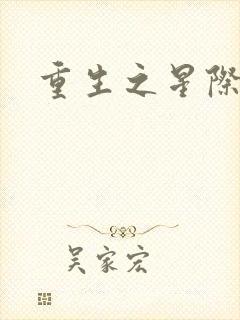 重生之星際
吴家宏